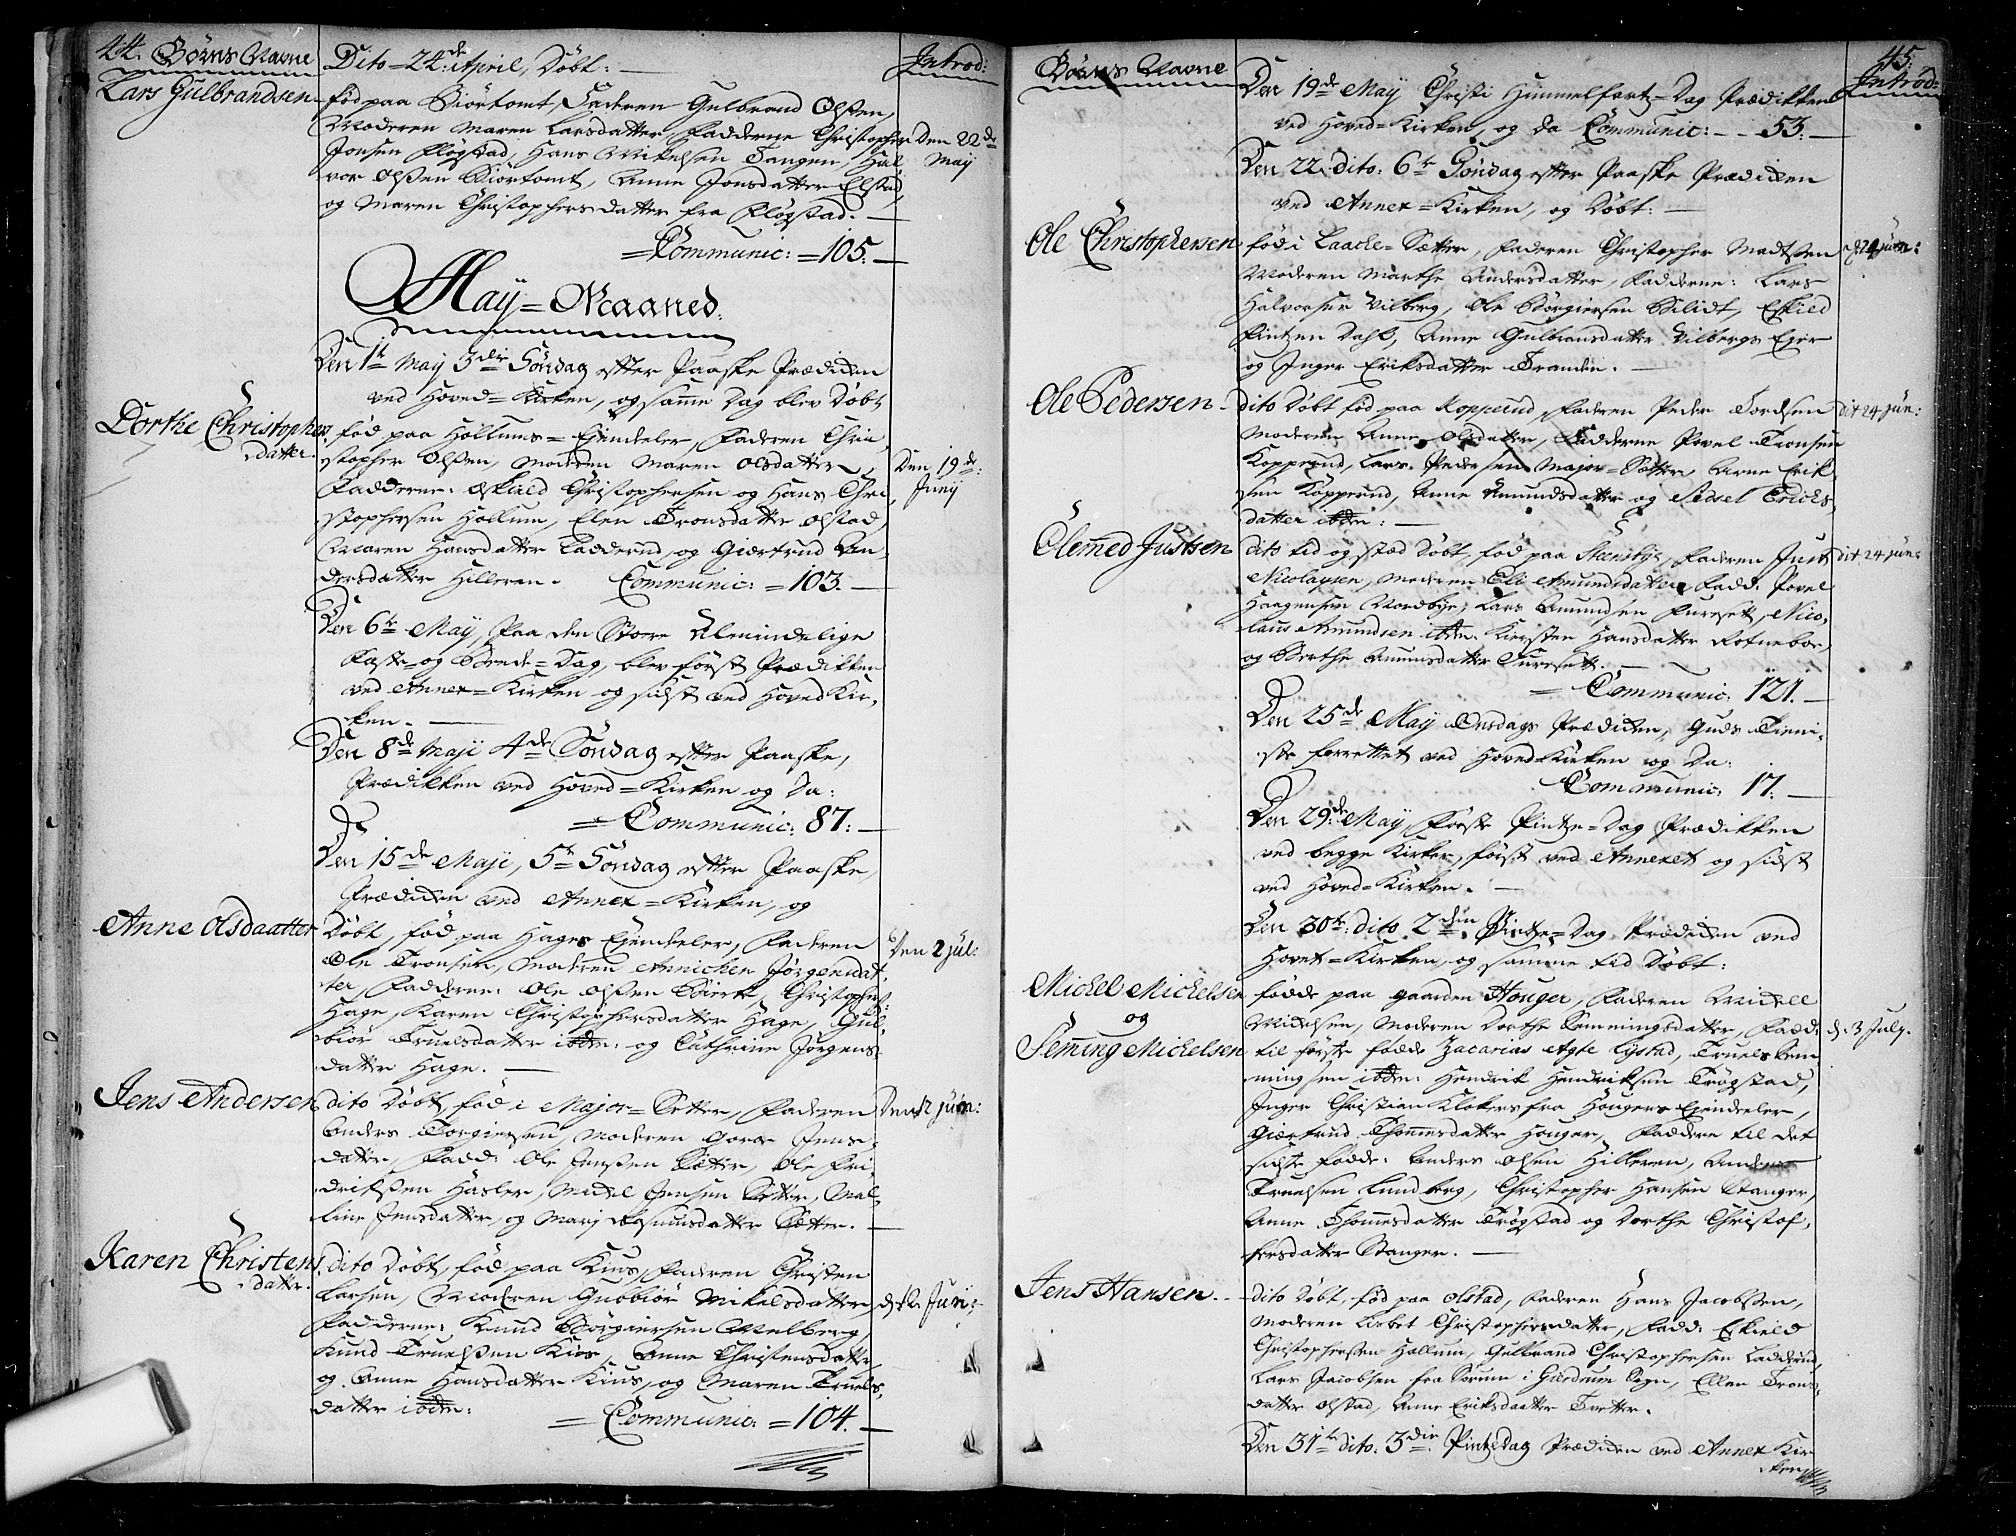 44.
Børns Navne
Dito 24de April, Døbt:
Introd:
Lars Gulbrandsen
fød paa Biørtomt, Faderen Gulbrand Olsen,
Moderen Maren Larsdatter, Fadderne Christopher
Den 22de
Jonsen Fløgstad, Hans Mikelsen Tangen, Hal
Maij
vor Olssen Biørtomt, Anne Jonsdatter Elstad,
og Maren Christophersdatter fra Fløgstad.
= Communic: = 105.
Maij = Maaned.
Den 1te Maij 3die Søndag efter Paaske Prædiken
ved Hoved = Kirken, og samme Dag blev Døbt
Dorthe Christophers
datter.
fød paa Hollums = Ejendeler, Faderen Chri
stopher Olssen, Moderen Maren Olsdatter,
Den 19de:
Fadderne: Eskield Christophersen og Hans Chri
Junij
stophersen Hollum, Elen Tronsdatter Olstad,
Maren Hansdatter Ladderud, og Giertrud An
dersdatter Hilleren. Communic: = 103.
Den 6te Maij, Paa den Store Almindelige
Faste og Beede = Dag, blev først Prædikken
ved Annex = Kirken og sidst ved Hoved Kir,
ken.
Den 8de Maji 4de Søndag efter Paaske,
Prædikken ved Hoved = Kirken og Da:
= Communic: 87:
Den 15de Maji, 5te Søndag efter Paaske,
Prædiken ved Annex = Kirken, og
Anne Olsdaatter
Døbt, fød paa Hages Ejendeler, Faderen
Den 2 Jul:
Ole Tronsen, Moderen Annichen Jørgensdat,
ter, Fadderne: Ole Olssen Christopher
Hage, Karen Christophersdatter Hage, Gul,
biør Truelsdatter ibdn: og Cathrine Jørgens
datter Hage.
Jens Andersen
dito Døbt, fød i Major = Setter, Faderen
Den 12 Jun:
Anders Torgiersen, Moderen Goroe Jens,
datter, Fadd: Ole Jenssen Setter, Ole Fri,
drikssen Hasler, Mikel Jensen Setter, Mal,
line Jensdatter, og Marj Rasmusdatter Setter.
Karen Christens
datter.
dito Døbt, fød paa Kius, Faderen Christen
Larsen, Moderen Gudbiør Mikelsdatter,
d: 12 Juni:
Fadderne: Knud Børgiersen Melberg,
Knud Truelssen Kius, Anne Christensdatter,
og Anne Hansdatter Kius, og Maren Truels,
datter ibdn:
= Communic: = 104.
45.
Børns Navne
Introd:
Den 19de Maij Christi Himmelfarts = Dag Prædikken
ved Hoved = Kirken, og da Communic: - - 53:
Den 22: dito: 6te Søndag efter Paaske Prædiken
ved Annex = Kirken, og Døbt:
Ole Christophersen
fød i Laache = Setter, Faderen Christopher Madssen
d: 24 Jun:
Moderen Marthe Andersdatter, Fadderne: Lars
Halvorsen Vilberg, Ole Børgiersen Bilidt, Eskield
Fintzen Dahl, Anne Gulbransdatter Vilbergs Ejer
og Inger Eriksdatter Tranden.
Ole Pedersen
dito Døbt fød paa Kopperud, Faderen Peder Tordsen
dit 24 Jun:
Moderen Anne Olsdatter, Fadderne Povel Tronsen
Kopperud, Lars Pedersen Major = Setter, Arne Erik
sen Kopperud, Anne Amundsdatter og Sidsel Erichs,
datter ibdn:
Clemmed Justsen
dito tid og stæd Døbt, fød paa Steensbye, Faderen Just
dit 24 Jun:
Nicolaysen, Moderen Eli Amundsdatter, Fadd: Povel
Haagensen Nordbye, Lars Amundsen Furesett, Nico,
laus Amundsen ibdn: Kiersten Hansdatter Rotneboe
og Berthe Amunsdatter Furesett.
= Communic: 121.
Den 25de Maij Onsdags Prædiken, Guds Tieni,
ste forrettet ved Hoved Kirken og Da:
Communic: 17:
Den 29de Maij, Første Pintze = Dag Prædikken
ved begge Kirker, først ved Annexet og sidst
ved Hoved = Kirken.
Den 30te: dito, 2den Pintze = Dag Prædiken ved
Hovet = Kirken, og samme tid Døbt:
Michel Michelsen
og
Semming Michelsen
fødde paa Gaarden Houger, Faderen Mikell
Mikelsen, Moderen Dorthe Semmingsdatter, Fadd:
d: 3 July.
til første fødde Zacarias Agte Lystad, Truels Sem
mingsen ibdn: Hendrik Hendriksen Trøgstad,
Inger Christian Klokers fra Hougers Ejendeeler,
Giertrud Thommesdatter Houger, Faddere til det
sidste fødde: Anders Olsen Hilleren, Anders
Truelsen Lundberg, Christopher Hansen Stanger,
Anne Thommesdatter Trøgstad og Dorthe Christof,
fersdatter Stanger.
Jens Hansen
dito Døbt, fød paa Olstad, Faderen Hans Jacobssen,
Moderen Lisbet Christophersdatter, Fadd: Eskield
Christophersen Hollum, Gulbrand Christophersen Ladderud
Lars Jacobsen fra Sørum i Gierdrum Sogn, Ellen Trons,
datter Olstad, Anne Eriksdaatter Tvetter.
Den 31te dito: 3die Pintzedag Prædiken ved Annex Kir
ken